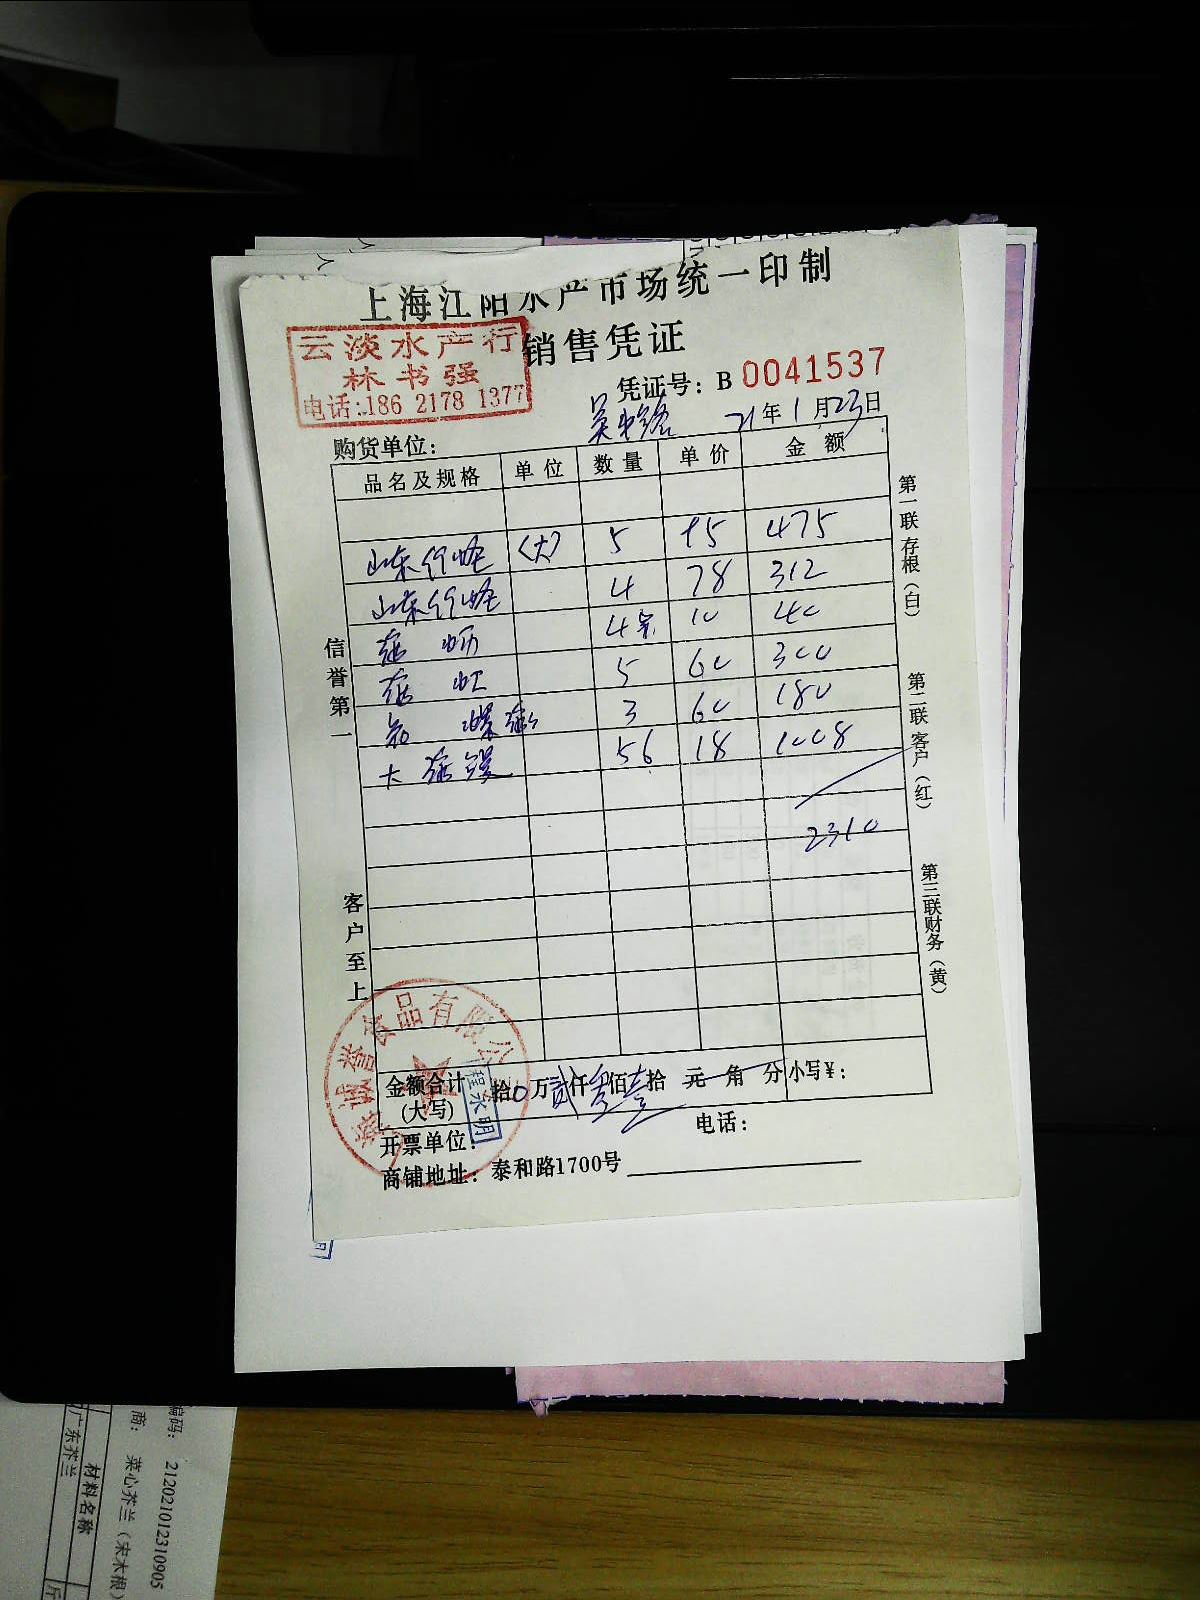 上海江阳水产市场统一印制
销售凭证
云淡水产行
林书强
电话:186 2178 1377
凭证号: B 0041537
21年1月23日
购货单位:
品名及规格 单位 数量 单价 金额
山东 (大) 5 95 475
山东 4 78 312
4 10 40
5 60 300
3 60 180
大 56 18 1008
2310
信誉第一
客户至上
第一联存根(白)
第二联客户(红)
第三联财务(黄)
金额合计(大写) 拾0万贰仟 佰 拾 元 角 分 小写¥:
诚誉食品有限公
程永明
开票单位:
电话:
商铺地址: 泰和路1700号
编码: 212021012310905
商: 菜心芥兰(宋木根)
材料名称
广东芥兰
斤